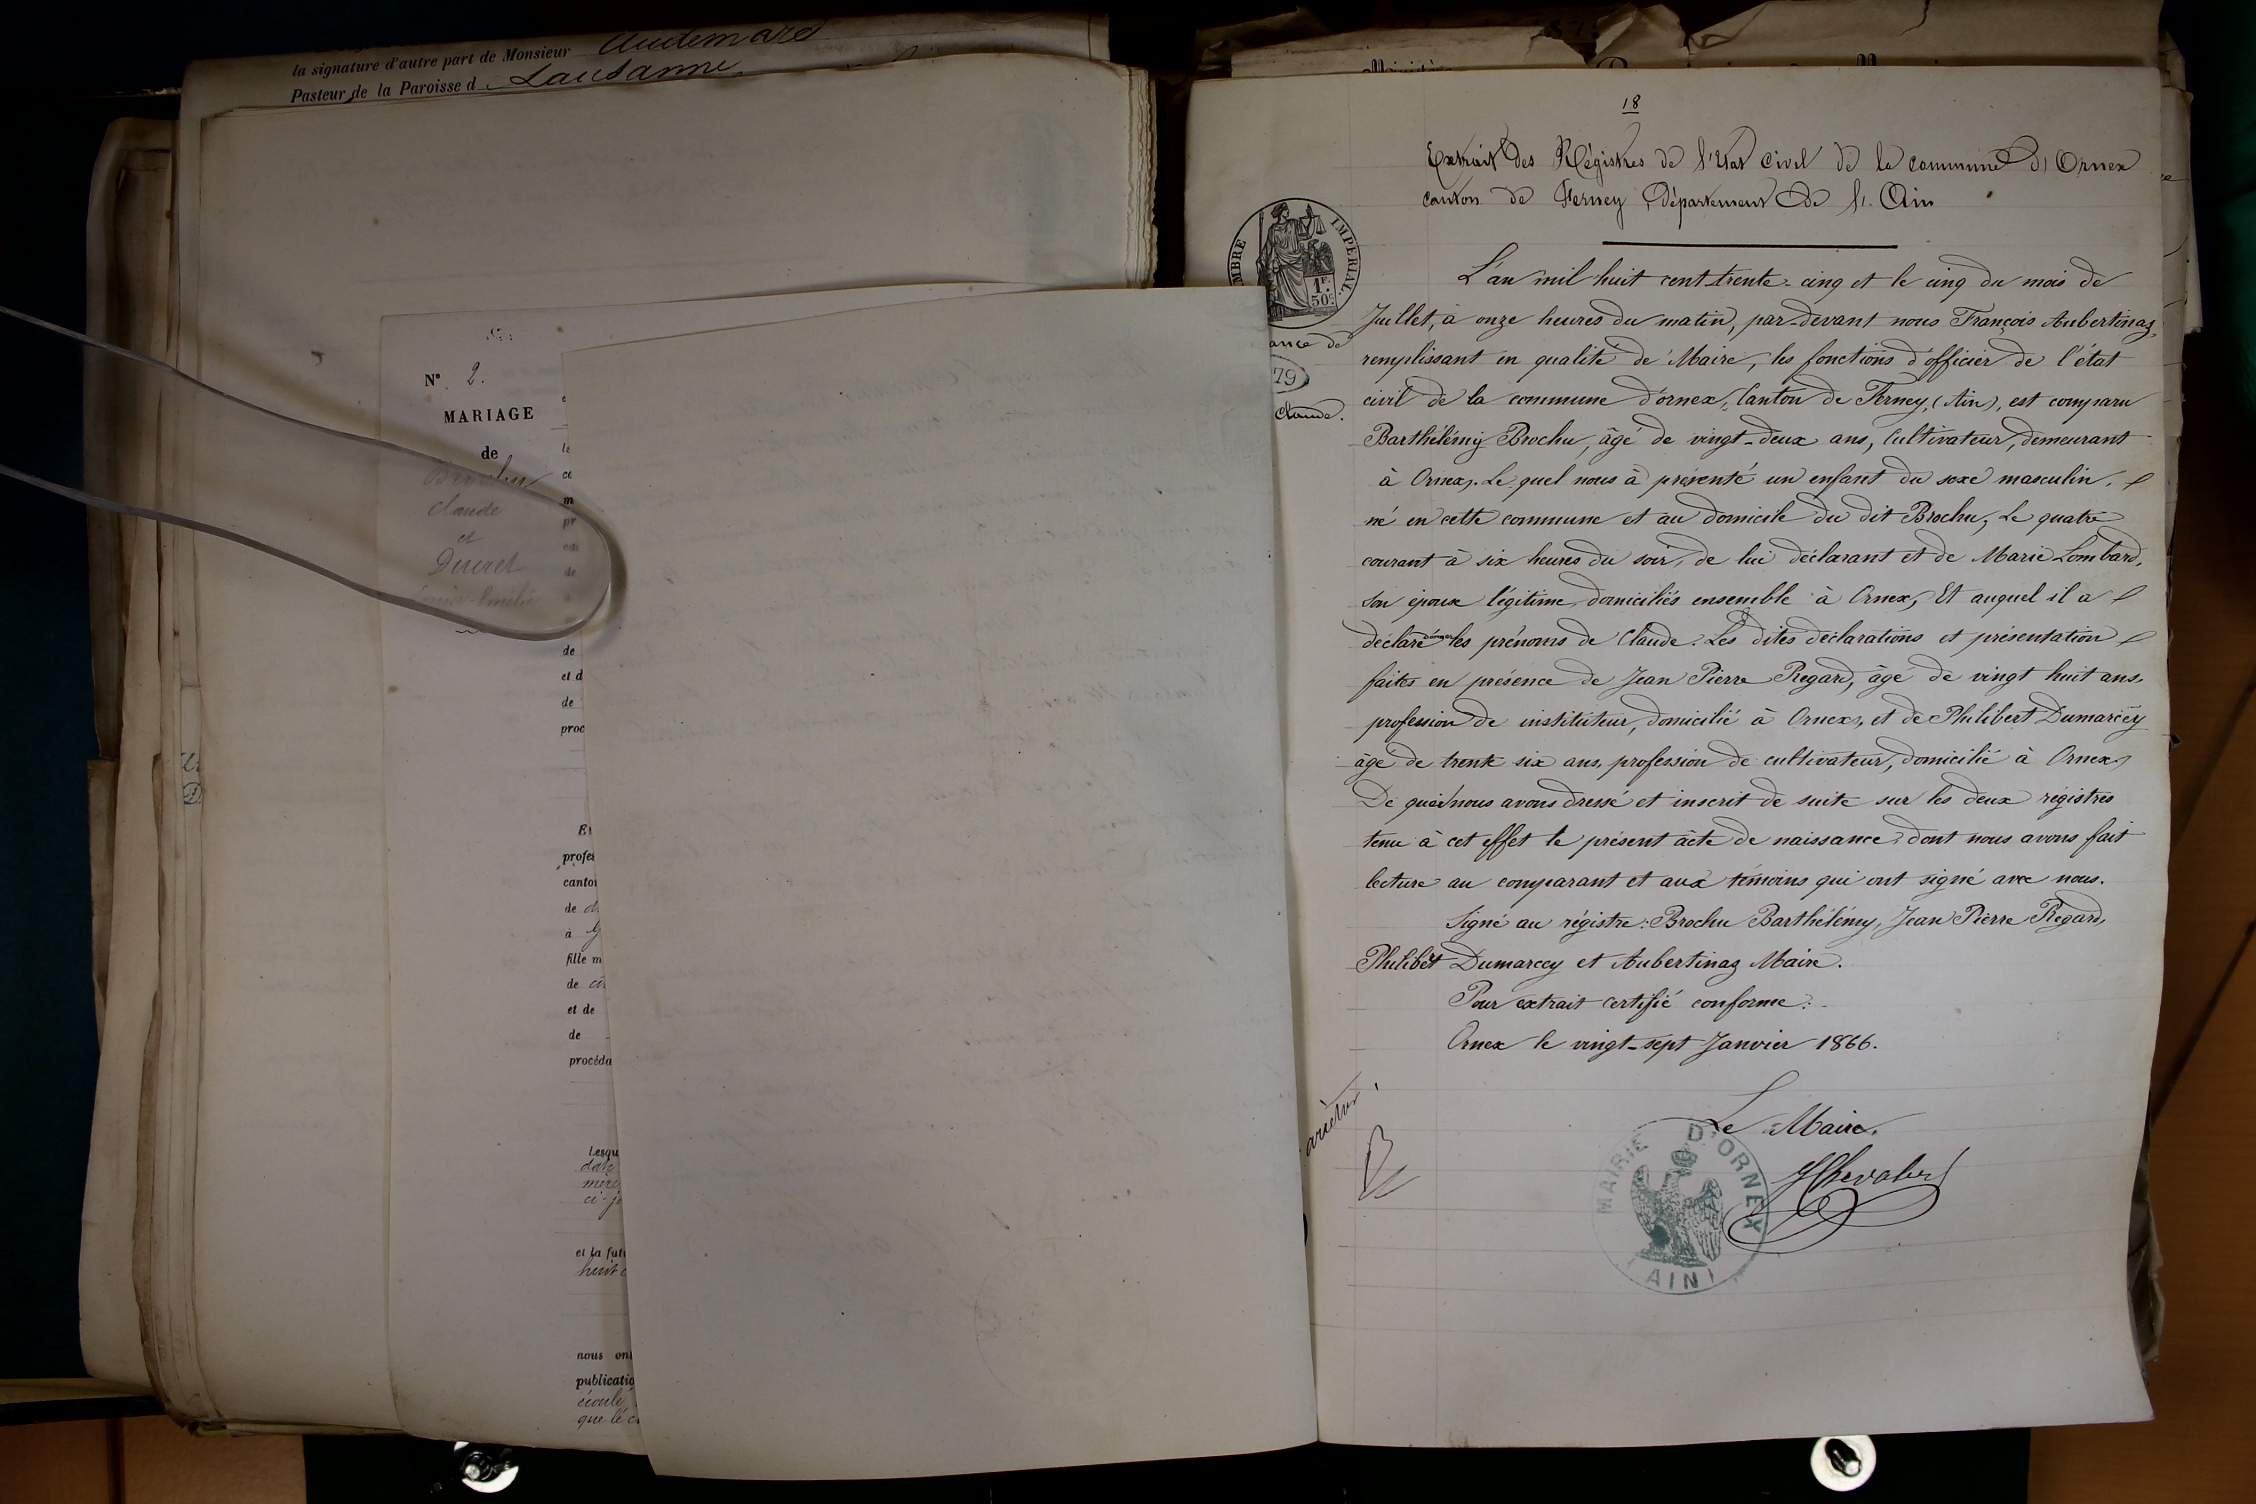 la signature d'autre part de Monsieur Audemars
Pasteur de la Paroisse d Lausanne
N° 2.
MARIAGE
de
Claude
et
Ducret
de
et d
de
proc
profes
canton
de
à
fille m
de
et de
de
procéda
Lesqu
et la futu
huit
nous ont
publicatio
écoulé
que le
18
Extrait des Régistres de l'Etat Civil de la commune d'Ornex
canton de Ferney, Département de l'Ain
IMPERIAL
1F.
50c.
ance de
79
Claude.
L'an mil huit cent trente-cinq et le cinq du mois de
Juillet, à onze heures du matin, par-devant nous François Aubertinaz,
remplissant en qualité de Maire, les fonctions d'officier de l'état
civil de la commune d'ornex, Canton de Ferney, (Ain), est comparu
Barthélémy Brochu, âgé de vingt-deux ans, Cultivateur, demeurant
à Ornex. Le quel nous à présenté un enfant du sexe masculin,
né en cette commune et au domicile du dit Brochu, le quatre
courant à six heures du soir, de lui déclarant et de Marie Lombard,
son épouse légitime, domiciliés ensemble à Ornex, Et auquel il a
déclaré donner les prénoms de Claude. Les dites déclarations et présentation
faites en présence de Jean Pierre Regard, âgé de vingt huit ans,
profession de instituteur, domicilié à Ornex, et de Philibert Dumarcey
âgé de trente six ans, profession de cultivateur, domicilié à Ornex,
De quoi nous avons dressé et inscrit de suite sur les deux régistres
tenu à cet effet le présent acte de naissance, dont nous avons fait
lecture au comparant et aux témoins qui ont signé avec nous.
Signé au régistre: Brochu Barthélémy, Jean Pierre Regard,
Philibert Dumarcey et Aubertinaz Maire.
Pour extrait certifié conforme:
Ornex le vingt-sept Janvier 1866.
Le Maire.
MAIRIE D'ORNEX
(AIN)